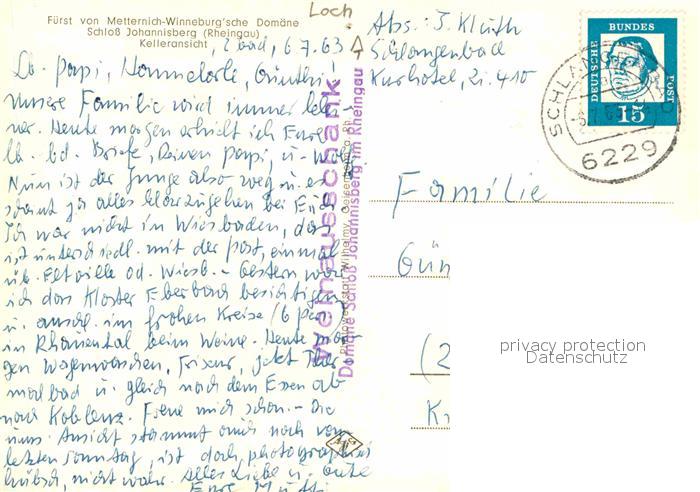 Fürst von Metternich-Winneburg'sche Domäne
Schloß Johannisberg (Rheingau)
Kelleransicht
Loch
Abs: J. Kluth
Schlangenbad
Kurhotel, Zi. 410
DEUTSCHE BUNDES POST
15
6229
6.7.63
Lb. Papi, Hannelorle, Günthi!
Unsere Familie wird immer klei-
ner. Heute morgen erhielt ich Eure
lb. bd. Briefe, Deinen Papi, u.
Nun ist der Junge also weg u. es
scheint ja alles klarzugehen bei Euch
Ich war nicht in Wiesbaden, das
ist unterschiedl. mit der Post, einmal
üb. Eltville od. Wiesb. - Gestern war
ich das Kloster Eberbach besichtigen
u. anschl. im frohen Kreise (6 Pers.)
in Rauental beim Weine. Heute mor-
gen Wagenwaschen, Friseur, jetzt Ther-
malbad u. gleich nach dem Essen ab
nach Koblenz. Freue mich schon. - Die
Ansicht stammt noch vom
letzten Sonntag, ist doch photographiert
hübsch, nicht wahr. Alles Liebe u. Gute
Eure Mutti
Weinausschank
Domäne Schloß Johannisberg im Rheingau
Familie
Gün
(2
K
privacy protection
Datenschutz